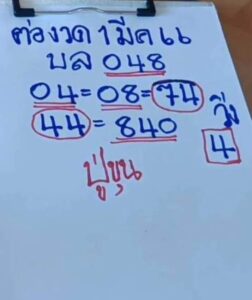 ต่องวด 1 มีค 66
บล 048
04=08=74
44=840
วิ่ง
4
ปู่ขุน